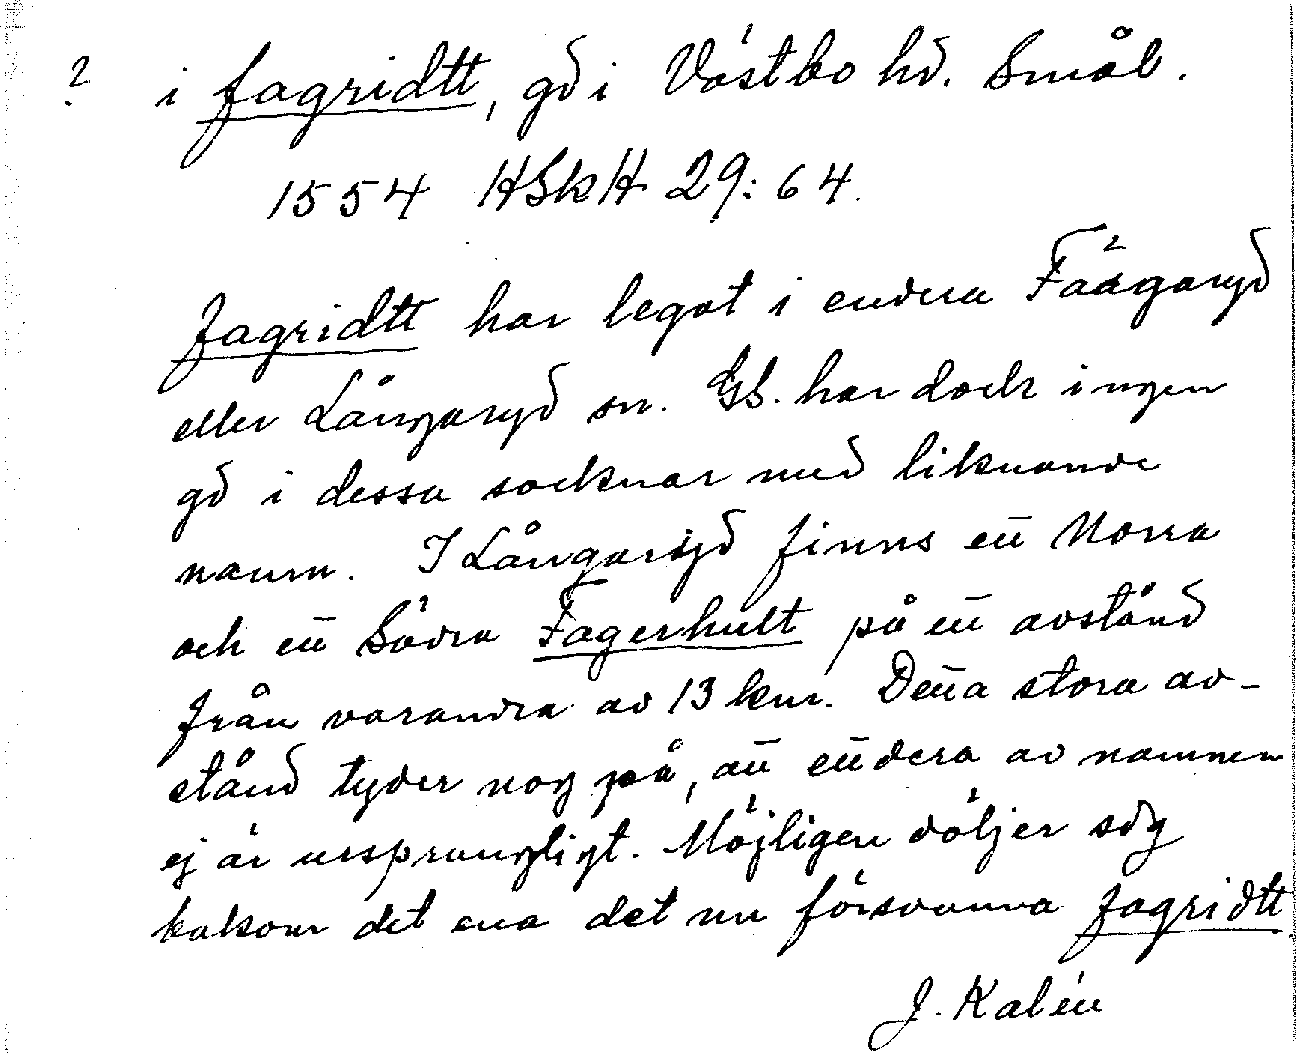 ? i fagridtt, gd i Västbo hd. Smål.
1554 HSkH 29:64.
fagridtt har legat i endera Färgaryd
eller Långaryd sn. GS. har dock ingen
gd i dessa socknar med liknande
namn. I Långaryd finns ett Norra
och ett Södra Fagerhult på ett avstånd
från varandra av 13 km. Detta stora av-
stånd tyder nog på, att ettdera av namnen
ej är ursprungligt. Möjligen döljer sig
bakom det ena det nu försvunna fagridtt.
J. Kalén